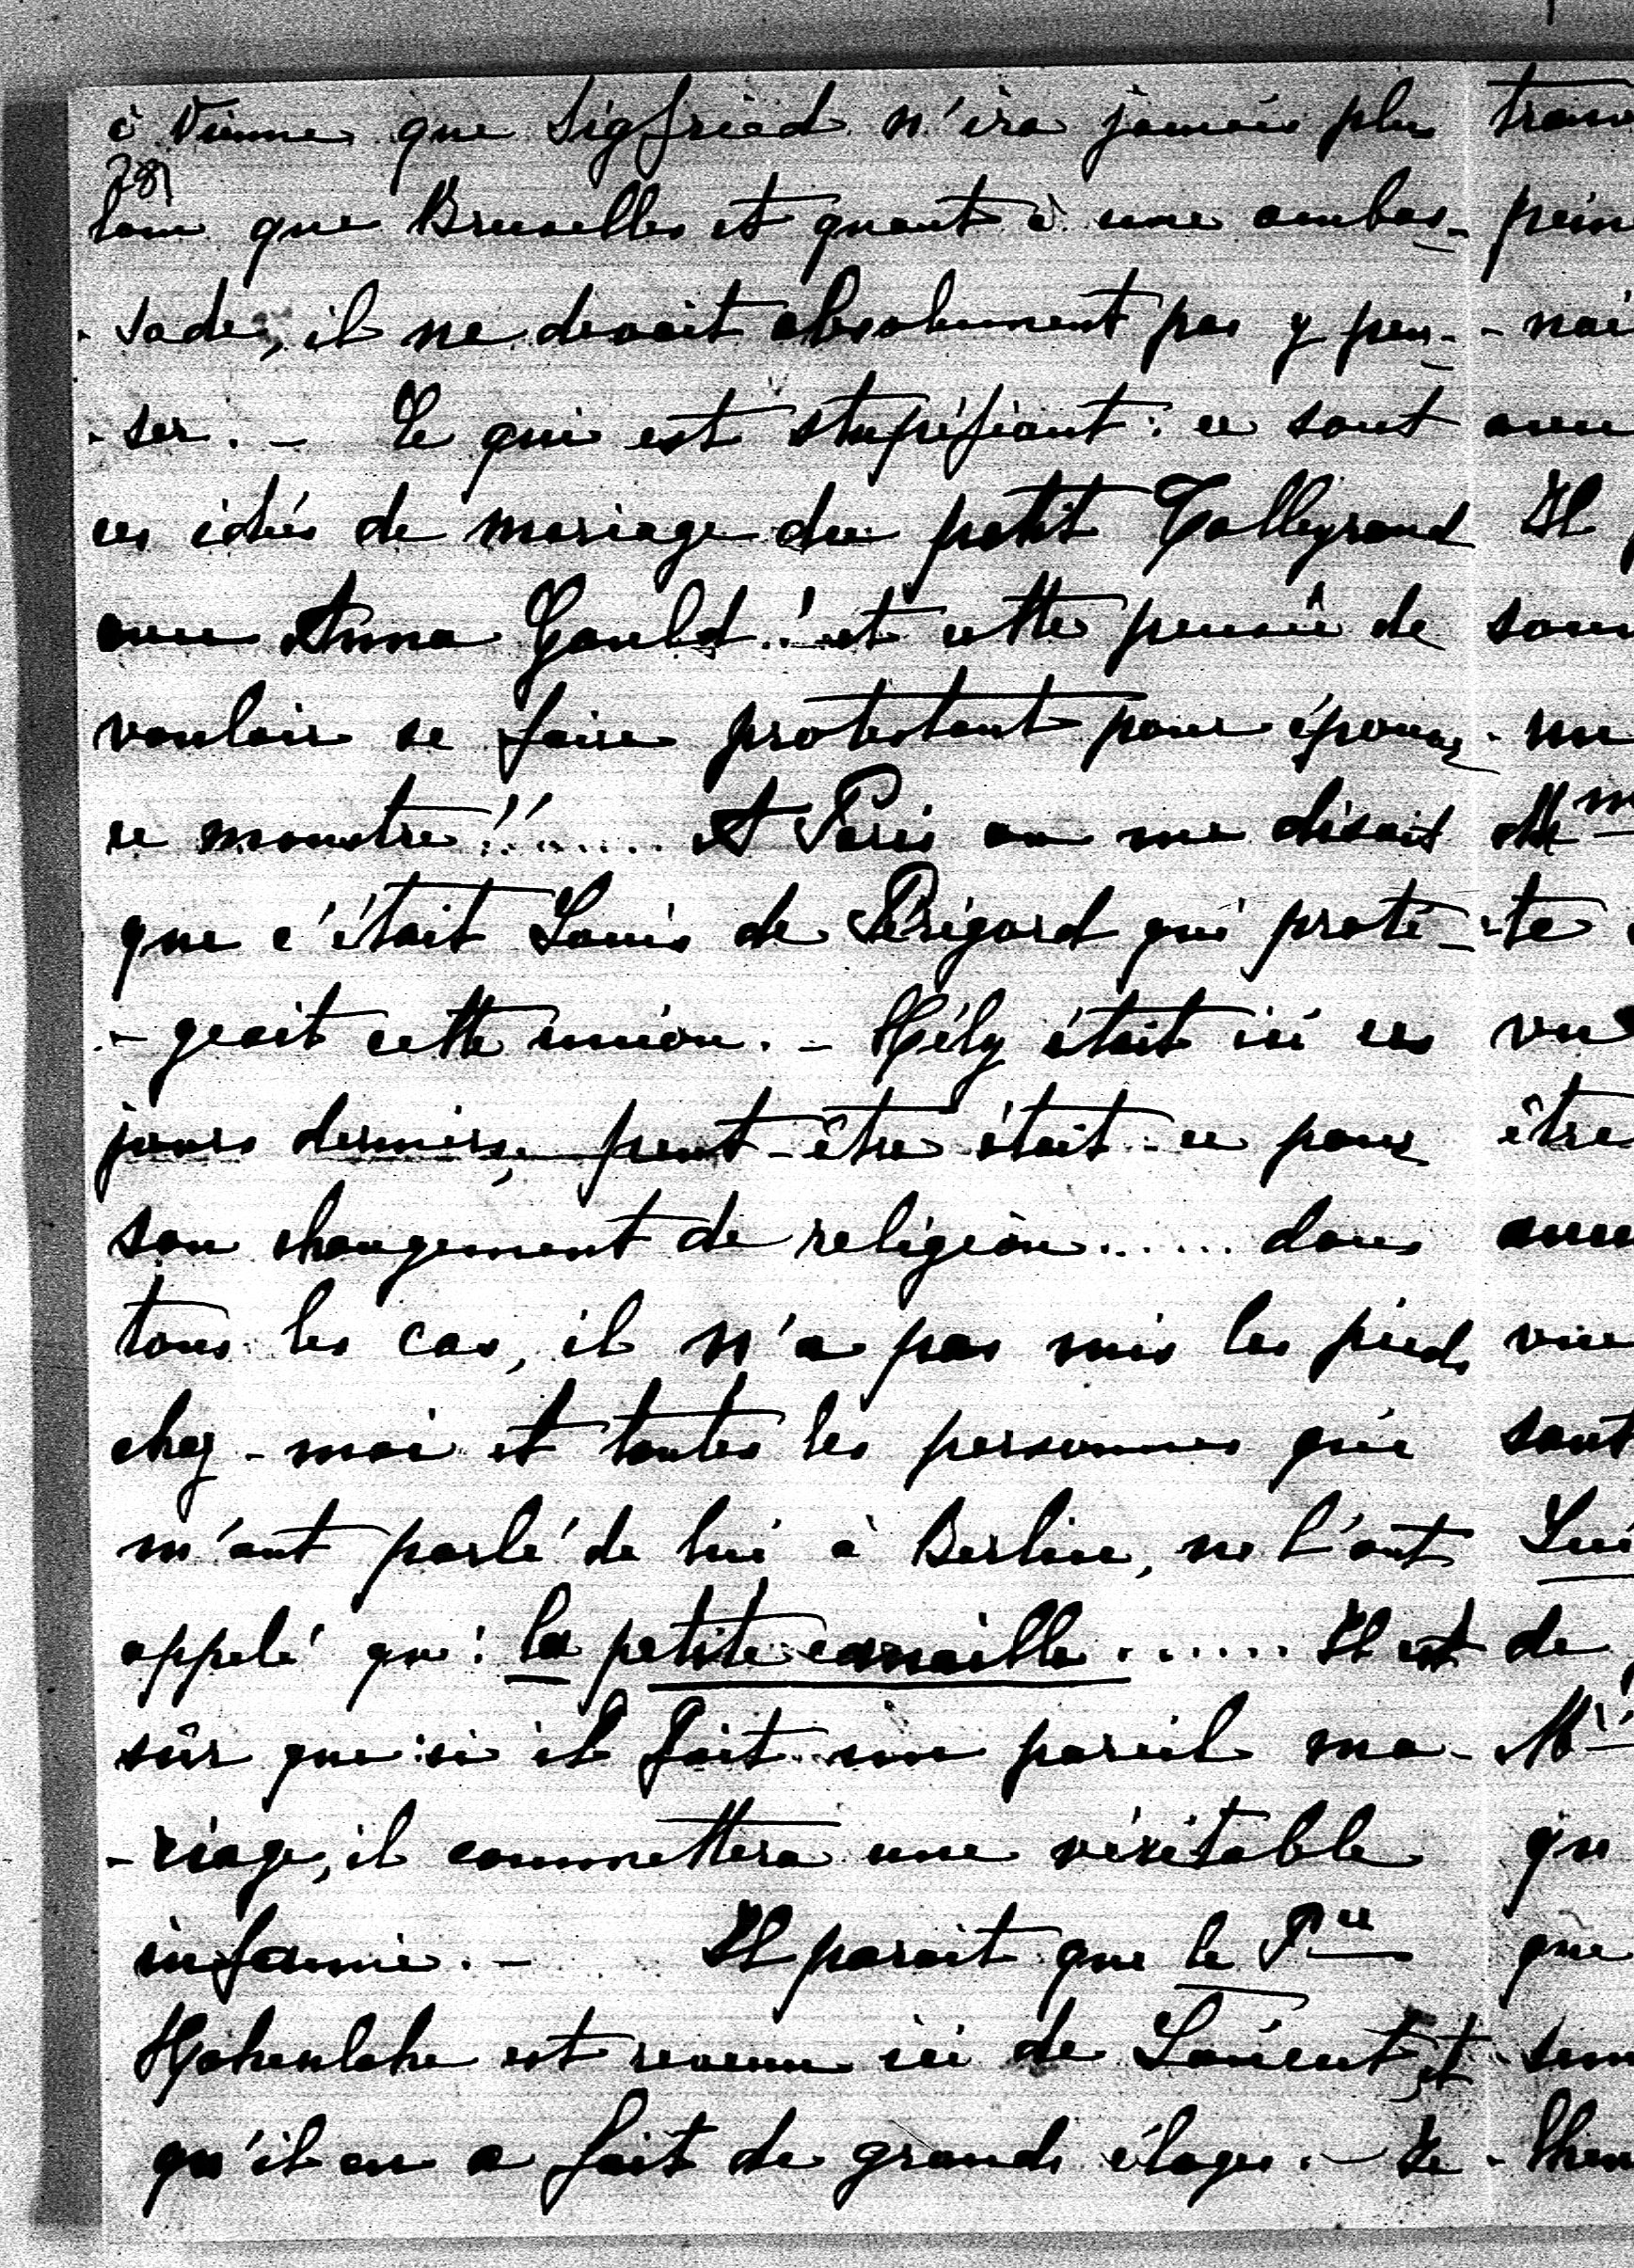 à Vienne que Sigfried n'ira jamais plus
281
loin que Bruxelles et quant à une ambas-
-sade, il ne devait absolument pas y pen-
-ser. - Ce qui est stupéfiant : ce sont
ces idées de mariage du petit Talleyrand
avec Anna Gould ! et cette pensée de
vouloir se faire protestant pour épouser
ce monstre !! ...... A Paris on me disait
que c'était Louis de Périgord qui proté-
-geait cette union. - Hély était ici ces
jours derniers, peut-être était-ce pour
son changement de religion ...... dans
tous les cas, il n'a pas mis les pieds
chez-moi et toutes les personnes qui
m'ont parlé de lui à Berlin, ne l'ont
appelé que : la petite canaille ...... Il est
sûr que si il fait un pareil ma-
-riage, il commettera une véritable
infamie. - Il parait que le Pce
Hohenlohe est revenu ici de et
qu'il en a fait de grands éloges. - Le
Il
Mm
-te
être
sont
Lui
de
que